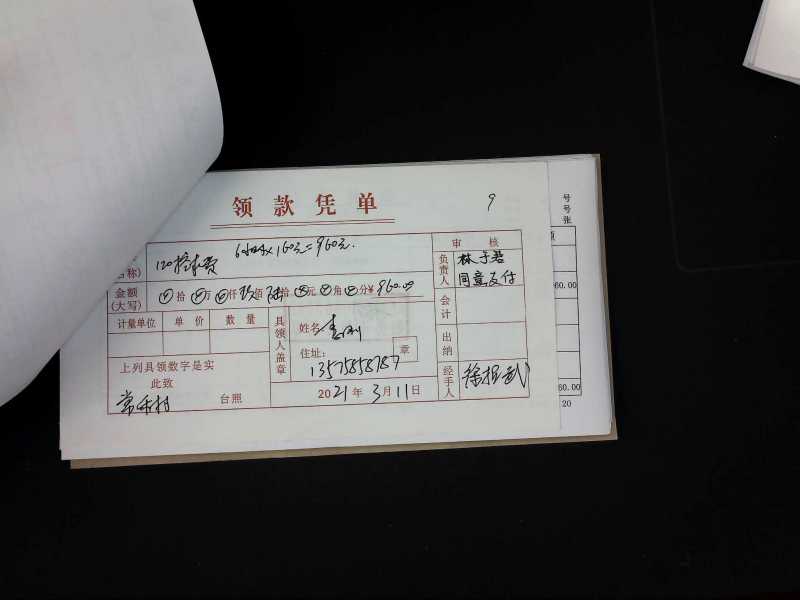 领款凭单
9
号
号
张
6小时×160元=960元.
名称)
120挖机费
审核
负责人
同意支付
金额
(大写)
拾万仟玖佰陆拾元角分¥960.00
960.00
计量单位 单价 数量
具领人盖章
姓名
会计
住址:
章
13575858787
出纳
上列具领数字是实
此致
台照
2021年3月11日
经手人
60.00
20